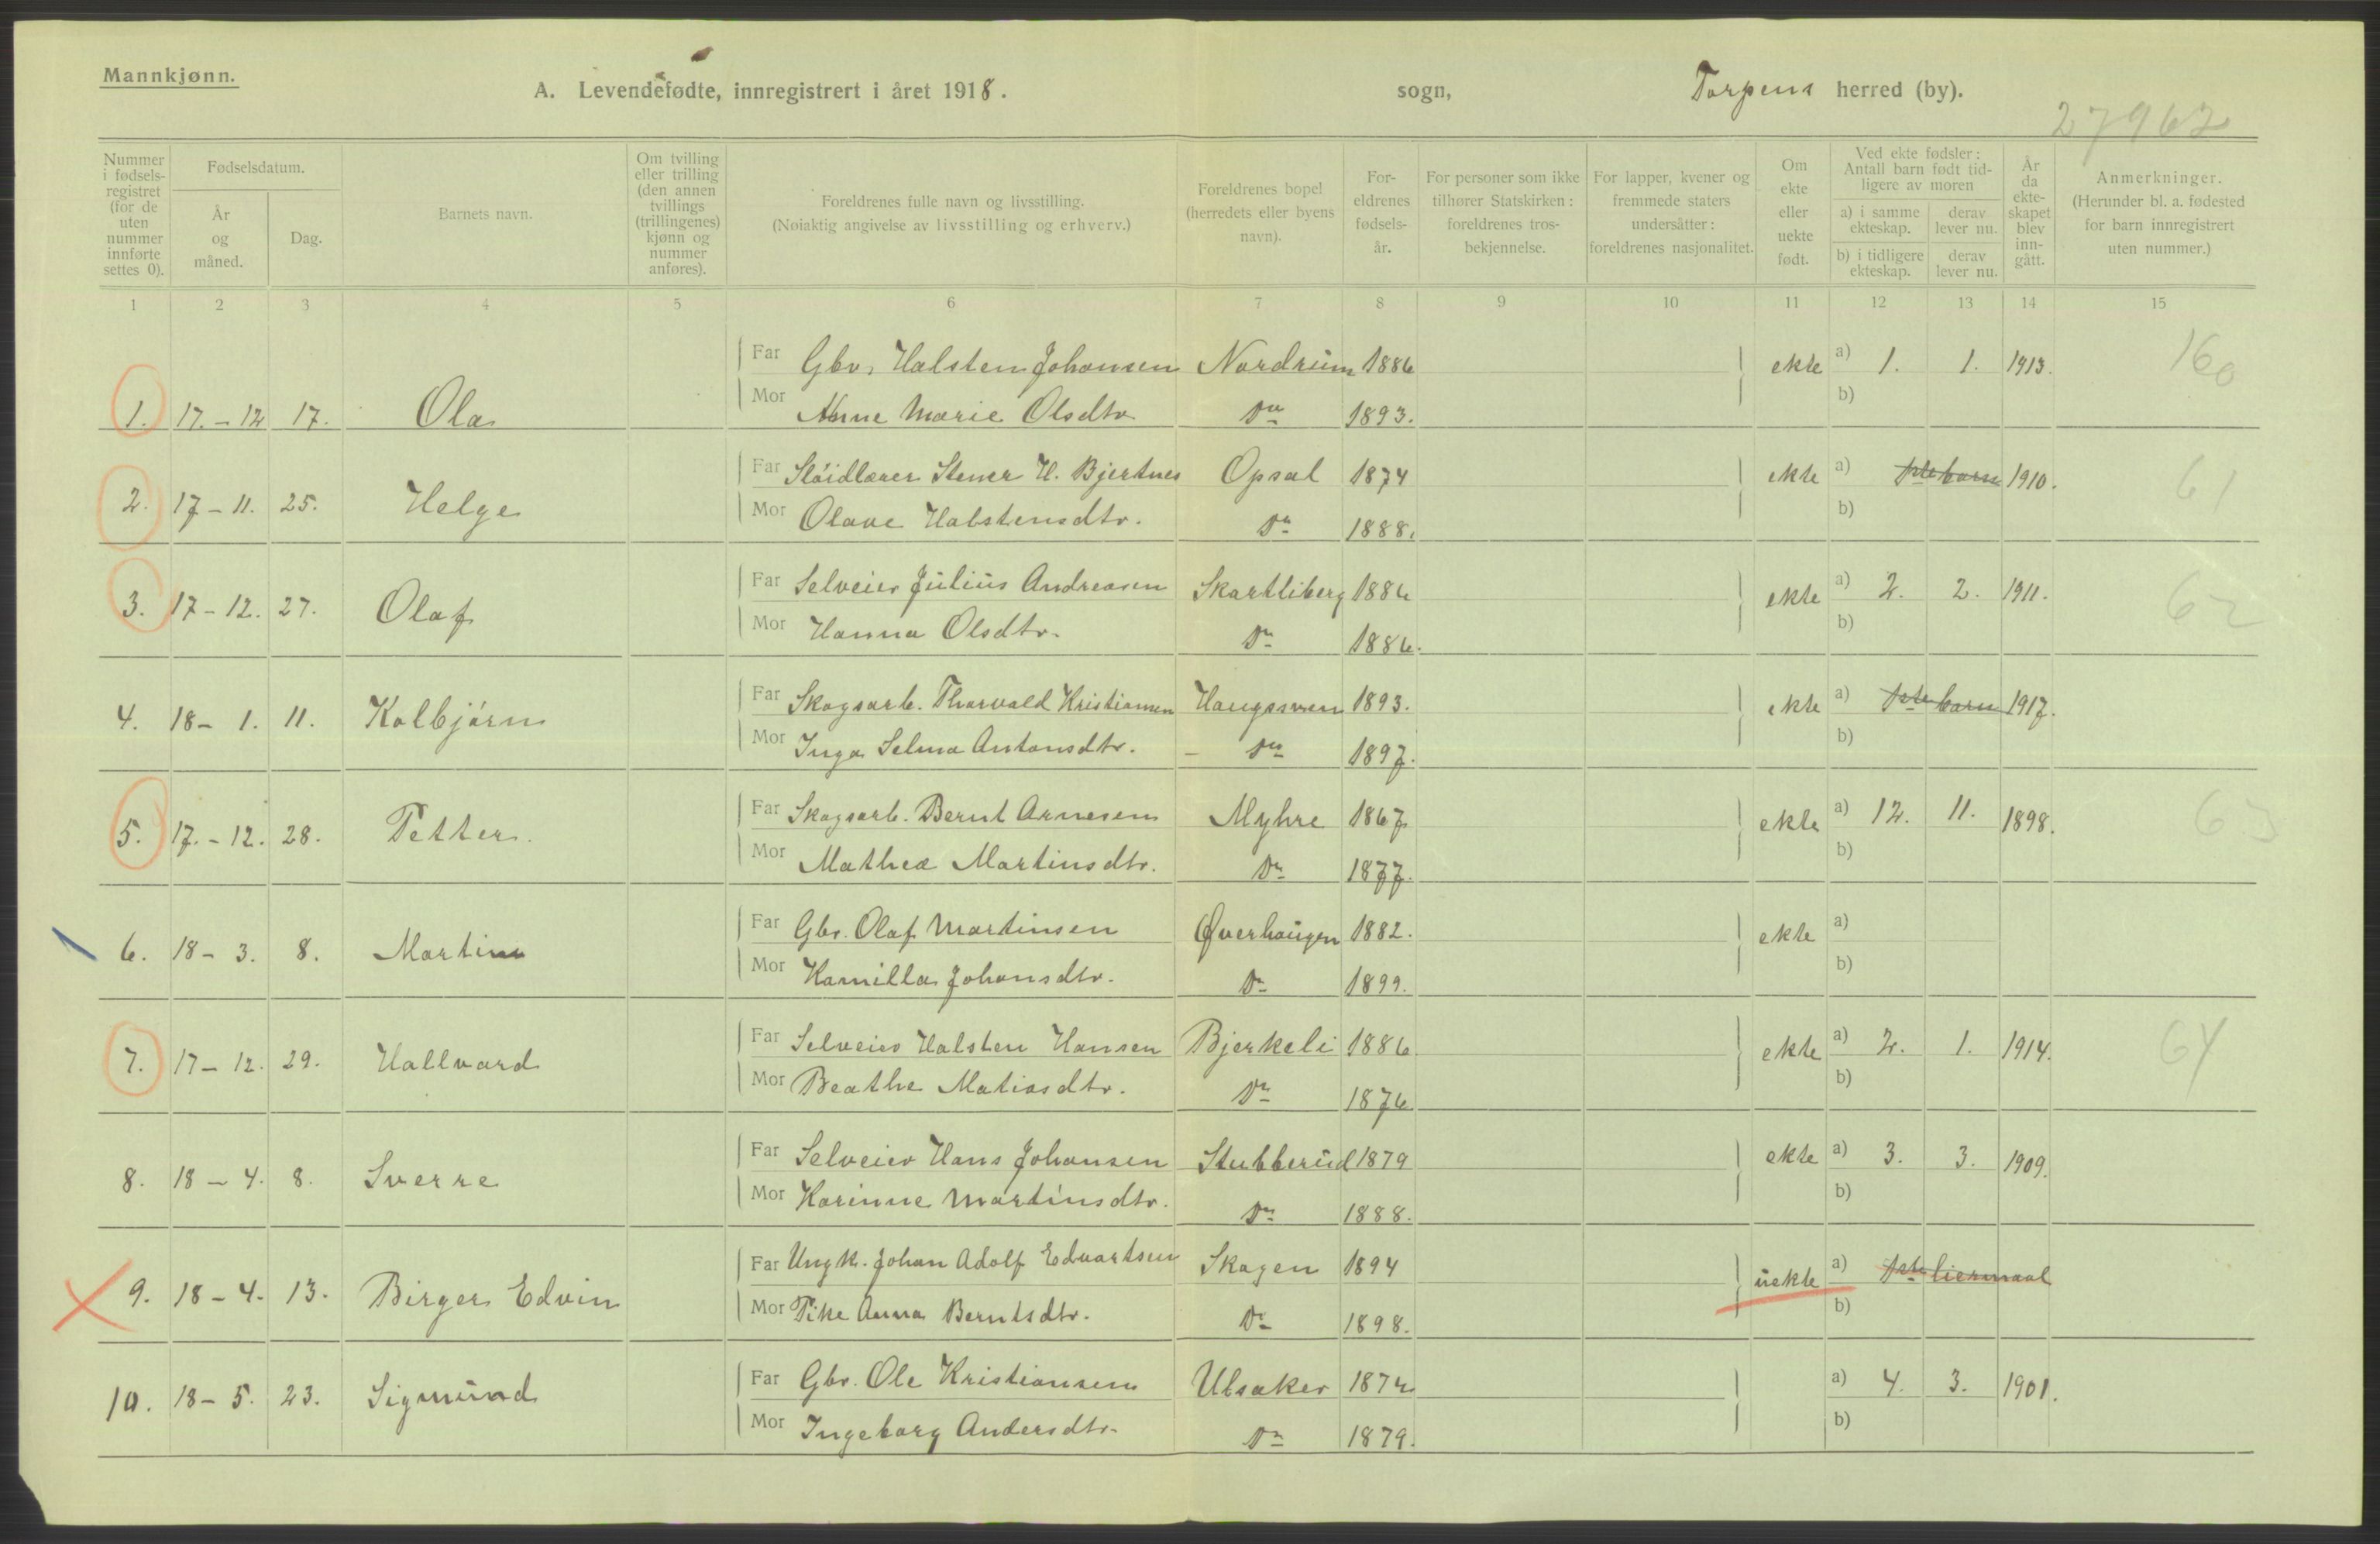 Mannkjønn.
A. Levendefødte, innregistrert i året 1918. sogn, Torpens herred (by).
27962
Nummer i fødsels-registret (for de uten nummer innførte settes 0).
Fødselsdatum.
År og måned.
Dag.
Barnets navn.
Om tvilling eller trilling (den annen tvillings (trillingenes) kjønn og nummer anføres).
Foreldrenes fulle navn og livsstilling.
(Nøiaktig angivelse av livsstilling og erhverv.)
Foreldrenes bopel (herredets eller byens navn).
For-eldrenes fødsels-år.
For personer som ikke tilhører Statskirken: foreldrenes tros-bekjennelse.
For lapper, kvener og fremmede staters undersåtter: foreldrenes nasjonalitet.
Om ekte eller uekte født.
Ved ekte fødsler: Antall barn født tid-ligere av moren
a) i samme ekteskap. derav lever nu.
b) i tidligere ekteskap. derav lever nu.
År da ekte-skapet blev inn-gått.
Anmerkninger.
(Herunder bl. a. fødested for barn innregistrert uten nummer.)
1 2 3 4 5 6 7 8 9 10 11 12 13 14 15
Far Gbr. Halsten Johansen Nordrum 1886 ekte a) 1. 1. 1913. 160
1. 17. - 12 17. Ola Mor Anne Marie Olsdtr Do 1893. b)
Far Sløidlærer Stener H. Bjertnes Opsal 1874 ekte a) 1ste barn 1910. 61
2. 17 - 11. 25. Helge Mor Olave Halstensdtr. Do 1888. b)
Far Selveier Julius Andreasen Skartliberg 1886 ekte a) 2. 2. 1911. 62
3. 17 - 12. 27. Olaf Mor Hanna Olsdtr. Do 1886. b)
Far Skogsarb. Thorvald Kristiansen Haugssveen 1893. ekte a) 1ste barn 1917.
4. 18 - 1. 11. Kolbjørn Mor Inga Selma Antonsdtr. - Do 1897. b)
Far Skogsarb. Bernt Arnesen Myhre 1867 ekte a) 12. 11. 1898. 63
5. 17. - 12. 28. Petter. Mor Mathea Martinsdtr. Do 1877. b)
Far Gbr. Olaf Martinsen Øverhaugen 1882. ekte a)
6. 18 - 3. 8. Martin Mor Kamilla Johansdtr. Do 1899. b)
Far Selveier Halsten Hansen Bjerkeli 1886 ekte a) 2. 1. 1914. 64
7. 17 - 12. 29. Hallvard Mor Beathe Matiasdtr. Do 1876 b)
Far Selveier Hans Johansen Stubberud 1879 ekte a) 3. 3. 1909.
8. 18 - 4. 8. Sverre Mor Karinne Martinsdtr. Do 1888. b)
Far Ungk. Johan Adolf Edvartsen Skagen 1894 uekte a) 1ste liermaal
9. 18 - 4. 13. Birger Edvin Mor Pike Anna Berntsdtr. Do 1898. b)
Far Gbr. Ole Kristiansen Ulsaker 1874 a) 4. 3. 1901.
10. 18 - 5. 23. Sigmund Mor Ingeborg Andersdtr. Do 1879. b)